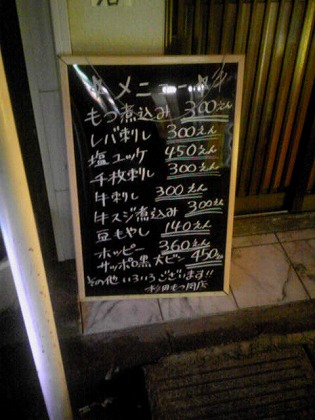 ☆メニュー☆
もつ煮込み 300えん
レバ刺し 300えん
塩ユッケ 450えん
千枚刺し 300えん
牛刺し 300えん
牛スジ煮込み 300えん
豆もやし 140えん
ホッピー 360えん
サッポロ黒 大ビン 450えん
その他 いろいろございます!!